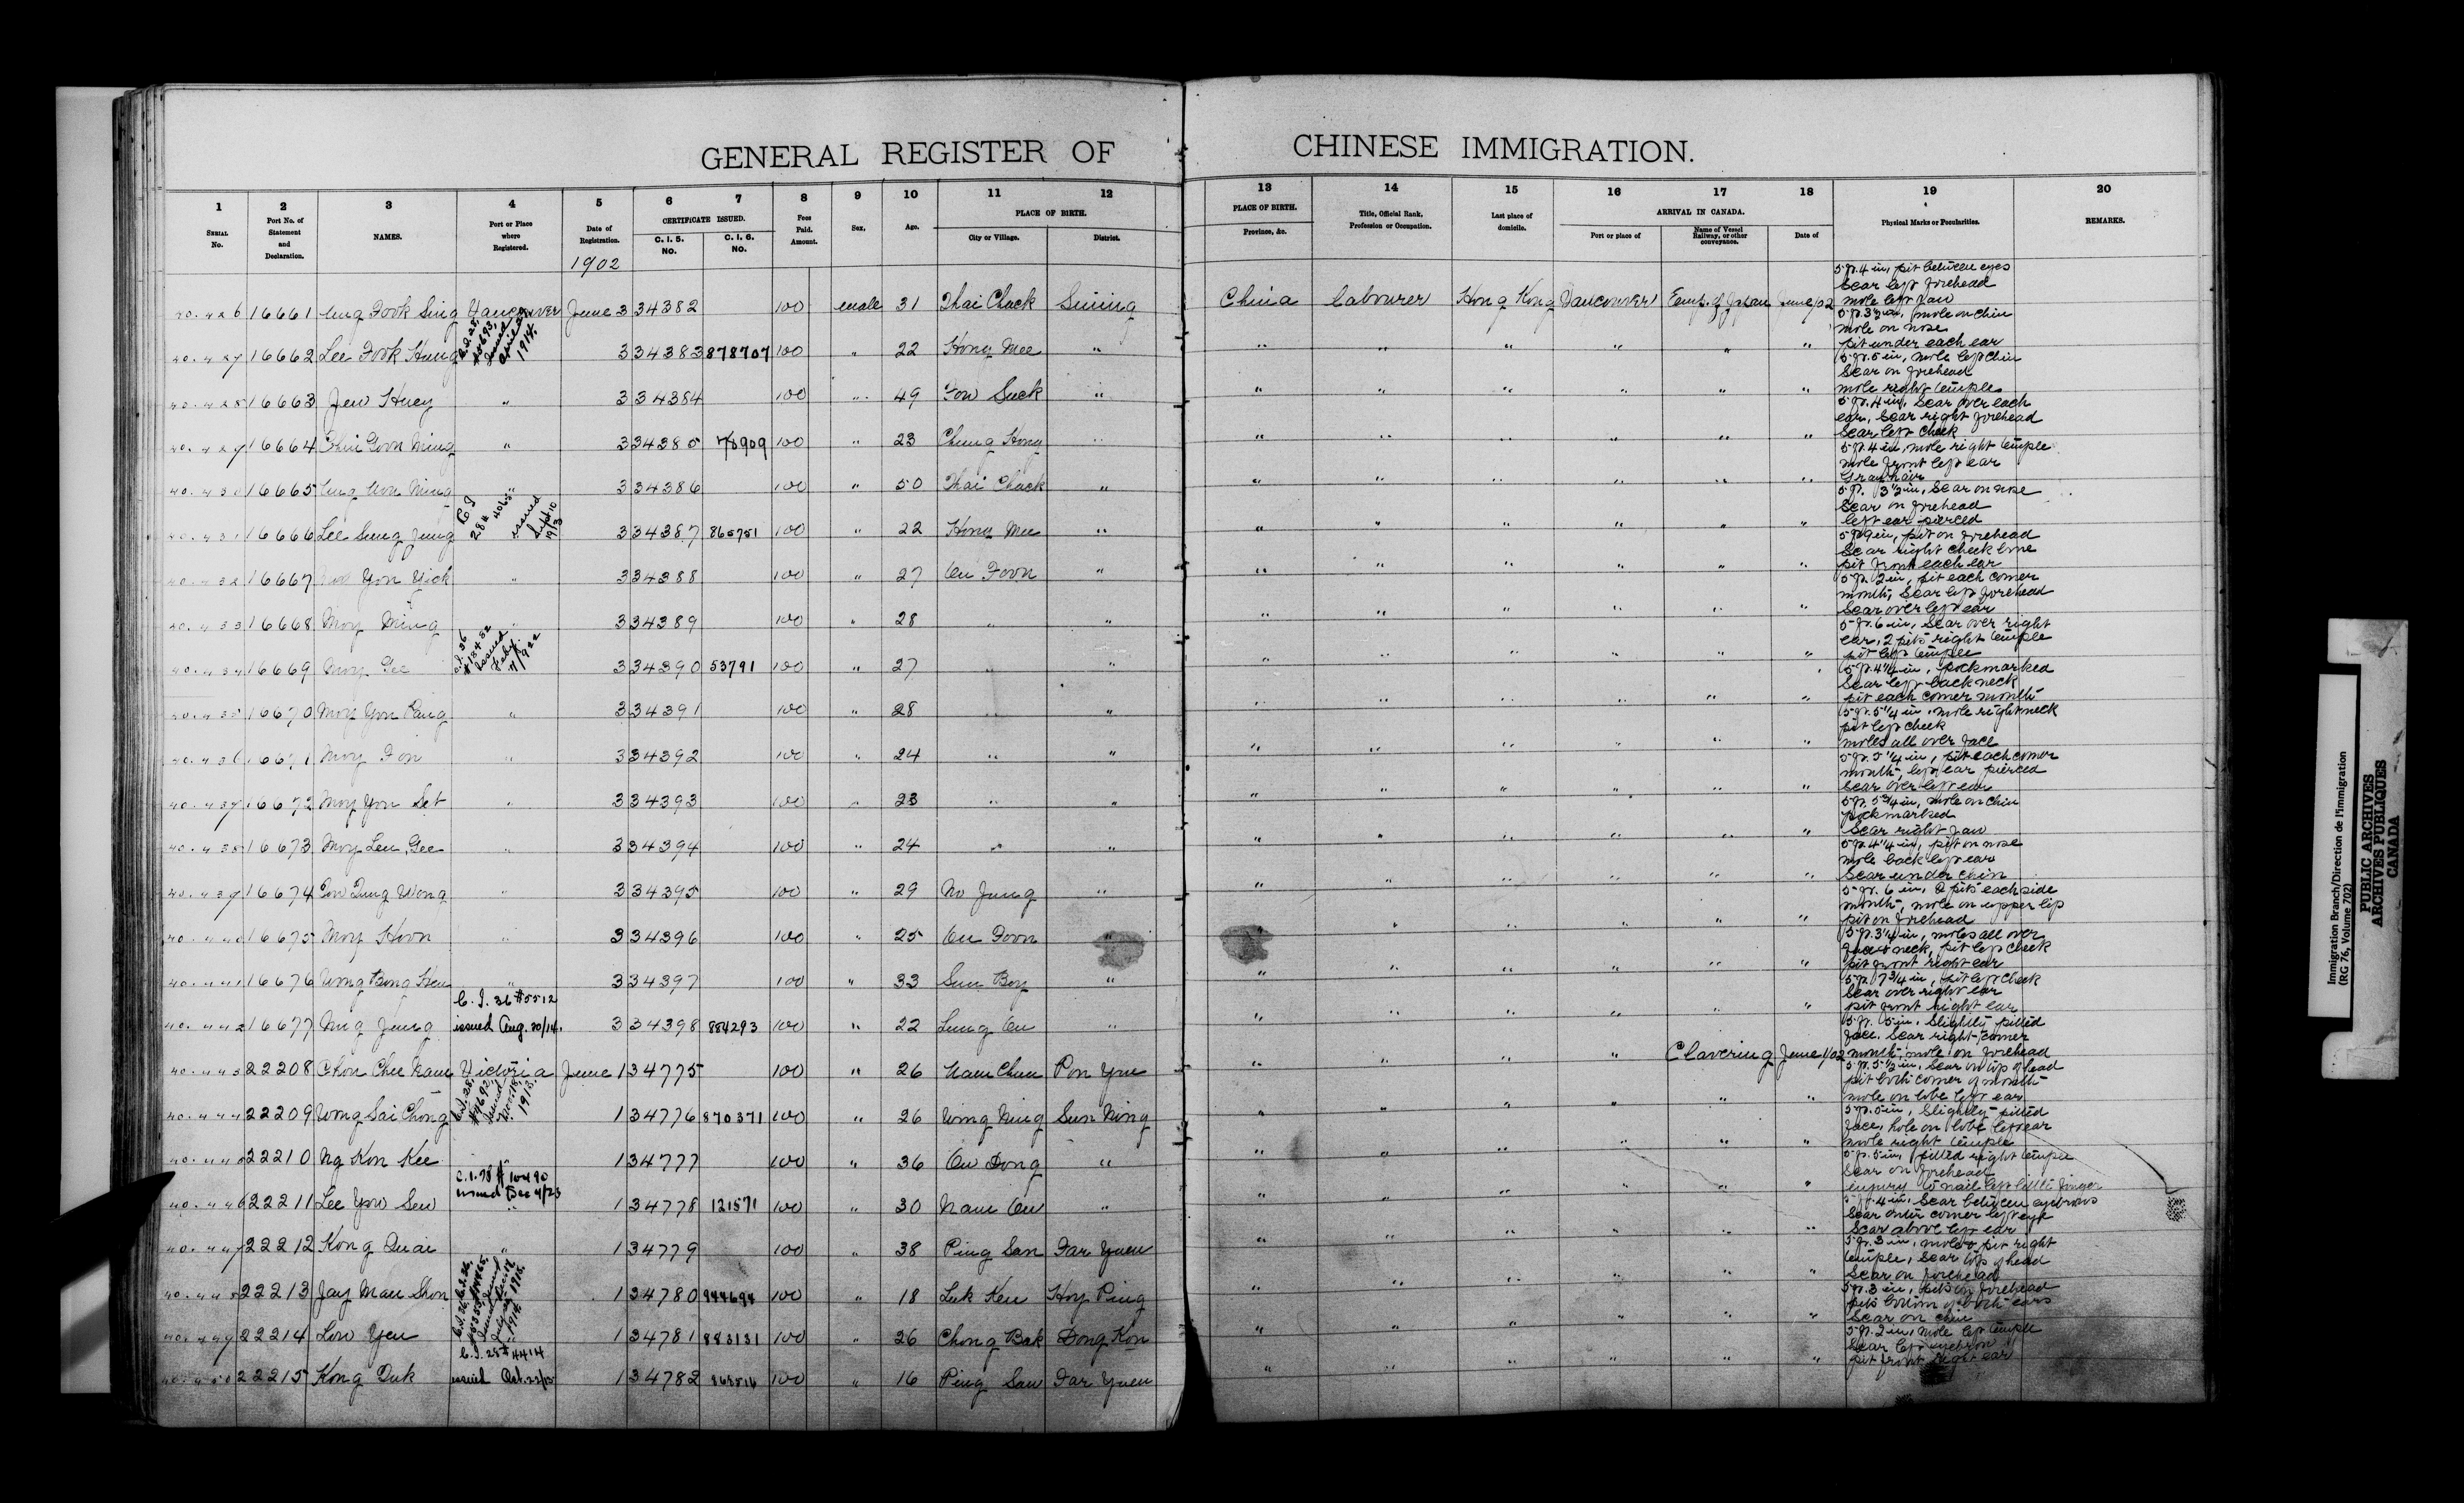 GENERAL REGISTER OF CHINESE IMMIGRATION.
1 2 3 4 5 6 7 8 9 10 11 12 13 14 15 16 17 18 19 20
SERIAL No. Port No. of Statement and Declaration. NAMES. Port or Place where Registered. Date of Registration. CERTIFICATE ISSUED. C. I. 5. NO. C. I. 6. NO. Fees Paid. Amount. Sex. Age. PLACE OF BIRTH. City or Village. District. PLACE OF BIRTH. Province, &c. Title, Official Rank, Profession or Occupation. Last place of domicile. ARRIVAL IN CANADA. Port or place of Name of Vessel Railway, or other conveyance. Date of Physical Marks or Peculiarities. REMARKS.
1902
16661 Fook Sing Vancouver June 3 34382 100 male 31 Thai Chack Sining China labourer Hong Kong Vancouver Emp. of Japan June /02 5 ft. 4 in, pit between eyes
scar left forehead
mole left jaw
16662 Lee Fook Hung 3 34383 878707 100 " 22 Hong Mee " " " " " " " 5 ft. 3½ in, mole on chin
mole on nose
pit under each ear
16663 Jew Huey " 3 34384 100 " 49 Fow Suck " " " " " " " 5 ft. 5 in, mole left chin
scar on forehead
mole right temple
16664 Chin Goon Ming " 3 34385 78909 100 " 23 Chung Hong " " " " " " " 5 ft. 4 in, scar over each
ear, scar right forehead
scar left cheek
16665 Ming " 3 34386 100 " 50 Thai Chack " " " " " " " 5 ft. 4 in, mole right temple
mole front left ear
Gray hair
16666 Lee Sung Jung issued Sept 10 1913 3 34387 865751 100 " 22 Hong Mee " " " " " " " 5 ft. 3½ in, scar on nose
scar on forehead
left ear pierced
16667 Yon Yick " 3 34388 100 " 27 On Foon " " " " " " " pit on forehead
scar right cheek bone
pit front each ear
16668 Moy Ming " 3 34389 100 " 28 " " " " " " " " 5 ft. 2 in, pit each corner
mouth, scar left forehead
scar over left ear
16669 Moy Gee 3 34390 53791 100 " 27 " " " " " " " " 5 ft. 6 in, scar over right
ear, 2 pits right temple
pit left temple
16670 Moy Yon " 3 34391 100 " 28 " " " " " " " " 5 ft. 4¼ in, pockmarked
scar left back neck
pit each corner mouth
16671 Moy Fon " 3 34392 100 " 24 " " " " " " " " 5 ft. 5¼ in, mole right neck
pit left cheek
moles all over face
16672 Moy Yon Set " 3 34393 100 " 23 " " " " " " " " 5 ft. 5¼ in, pit each corner
mouth, left ear pierced
scar over left ear
16673 Moy Len Gee " 3 34394 100 " 24 " " " " " " " " 5 ft. 5¾ in, mole on chin
pockmarked
scar right jaw
16674 Wong " 3 34395 100 " 29 No Jung " " " " " " " 5 ft. 4¼ in, pit on nose
mole back left ear
scar under chin
16675 Moy Hoon " 3 34396 100 " 25 On Foon " " " " " " " 5 ft. 6 in, 2 pits each side
mouth, mole on upper lip
pit on forehead
16676 Wong Bong Hen " 3 34397 100 " 33 Sun Boy " " " " " " " 5 ft. 3¼ in, moles all over
face & neck, pit left cheek
pit front right ear
C. I. 36 #5512
16677 Ning Jung issued Aug. 20/14. 3 34398 884293 100 " 22 Lung On " " " " " " " 5 ft. 7¾ in, pit left cheek
scar over right ear
pit front right ear
22208 Chon Chu Nam Victoria June 1 34775 100 " 26 Nam Chun Pon Yu " " " " Clavering June 1/02 5 ft. 5 in, slightly pitted
face, scar right corner
mouth, mole on forehead
22209 Wong Sai Chong 1 34776 870371 100 " 26 Wong Ning Sun Ning " " " " " " 5 ft. 5½ in, scar on top of head
pit both corner of mouth
mole on lobe left ear
22210 Ng Kon Kee " 1 34777 100 " 36 On Dong " " " " " " " 5 ft. 5 in, slightly pitted
face, hole on lobe left ear
mole right temple
C. I. 28 # 10490
issued Dec 4/23
22211 Lee Yow Sew " 1 34778 121571 100 " 30 Nam On " " " " " " " 5 ft. 5 in, pitted right temple
scar on forehead
injury to nail left little finger
22212 Kong Quai " 1 34779 100 " 38 Ping San Far Yuen " " " " " " 5 ft. 4 in, scar between eyebrows
scar outer corner left eye
scar above left ear
22213 Jay Man Shon 1 34780 944694 100 " 18 Luk Ken Hoy Ping " " " " " " 5 ft. 3 in, mole & pit right
temple, scar top of head
scar on forehead
22214 Low Yen 1 34781 883131 100 " 26 Chong Bak Dong Kon " " " " " " 5 ft. 3 in, pits on forehead
pits bottom of both ears
scar on chin
C. I. 28 # 4414
22215 Kong Duk issued Oct. 1 34782 100 " 16 Ping San Far Yuen " " " " " " 5 ft. 2 in, mole left temple
scar left eyebrow
pit front right ear
Immigration Branch/Direction de l'immigration
(RG 76, Volume 702)
PUBLIC ARCHIVES
ARCHIVES PUBLIQUES
CANADA